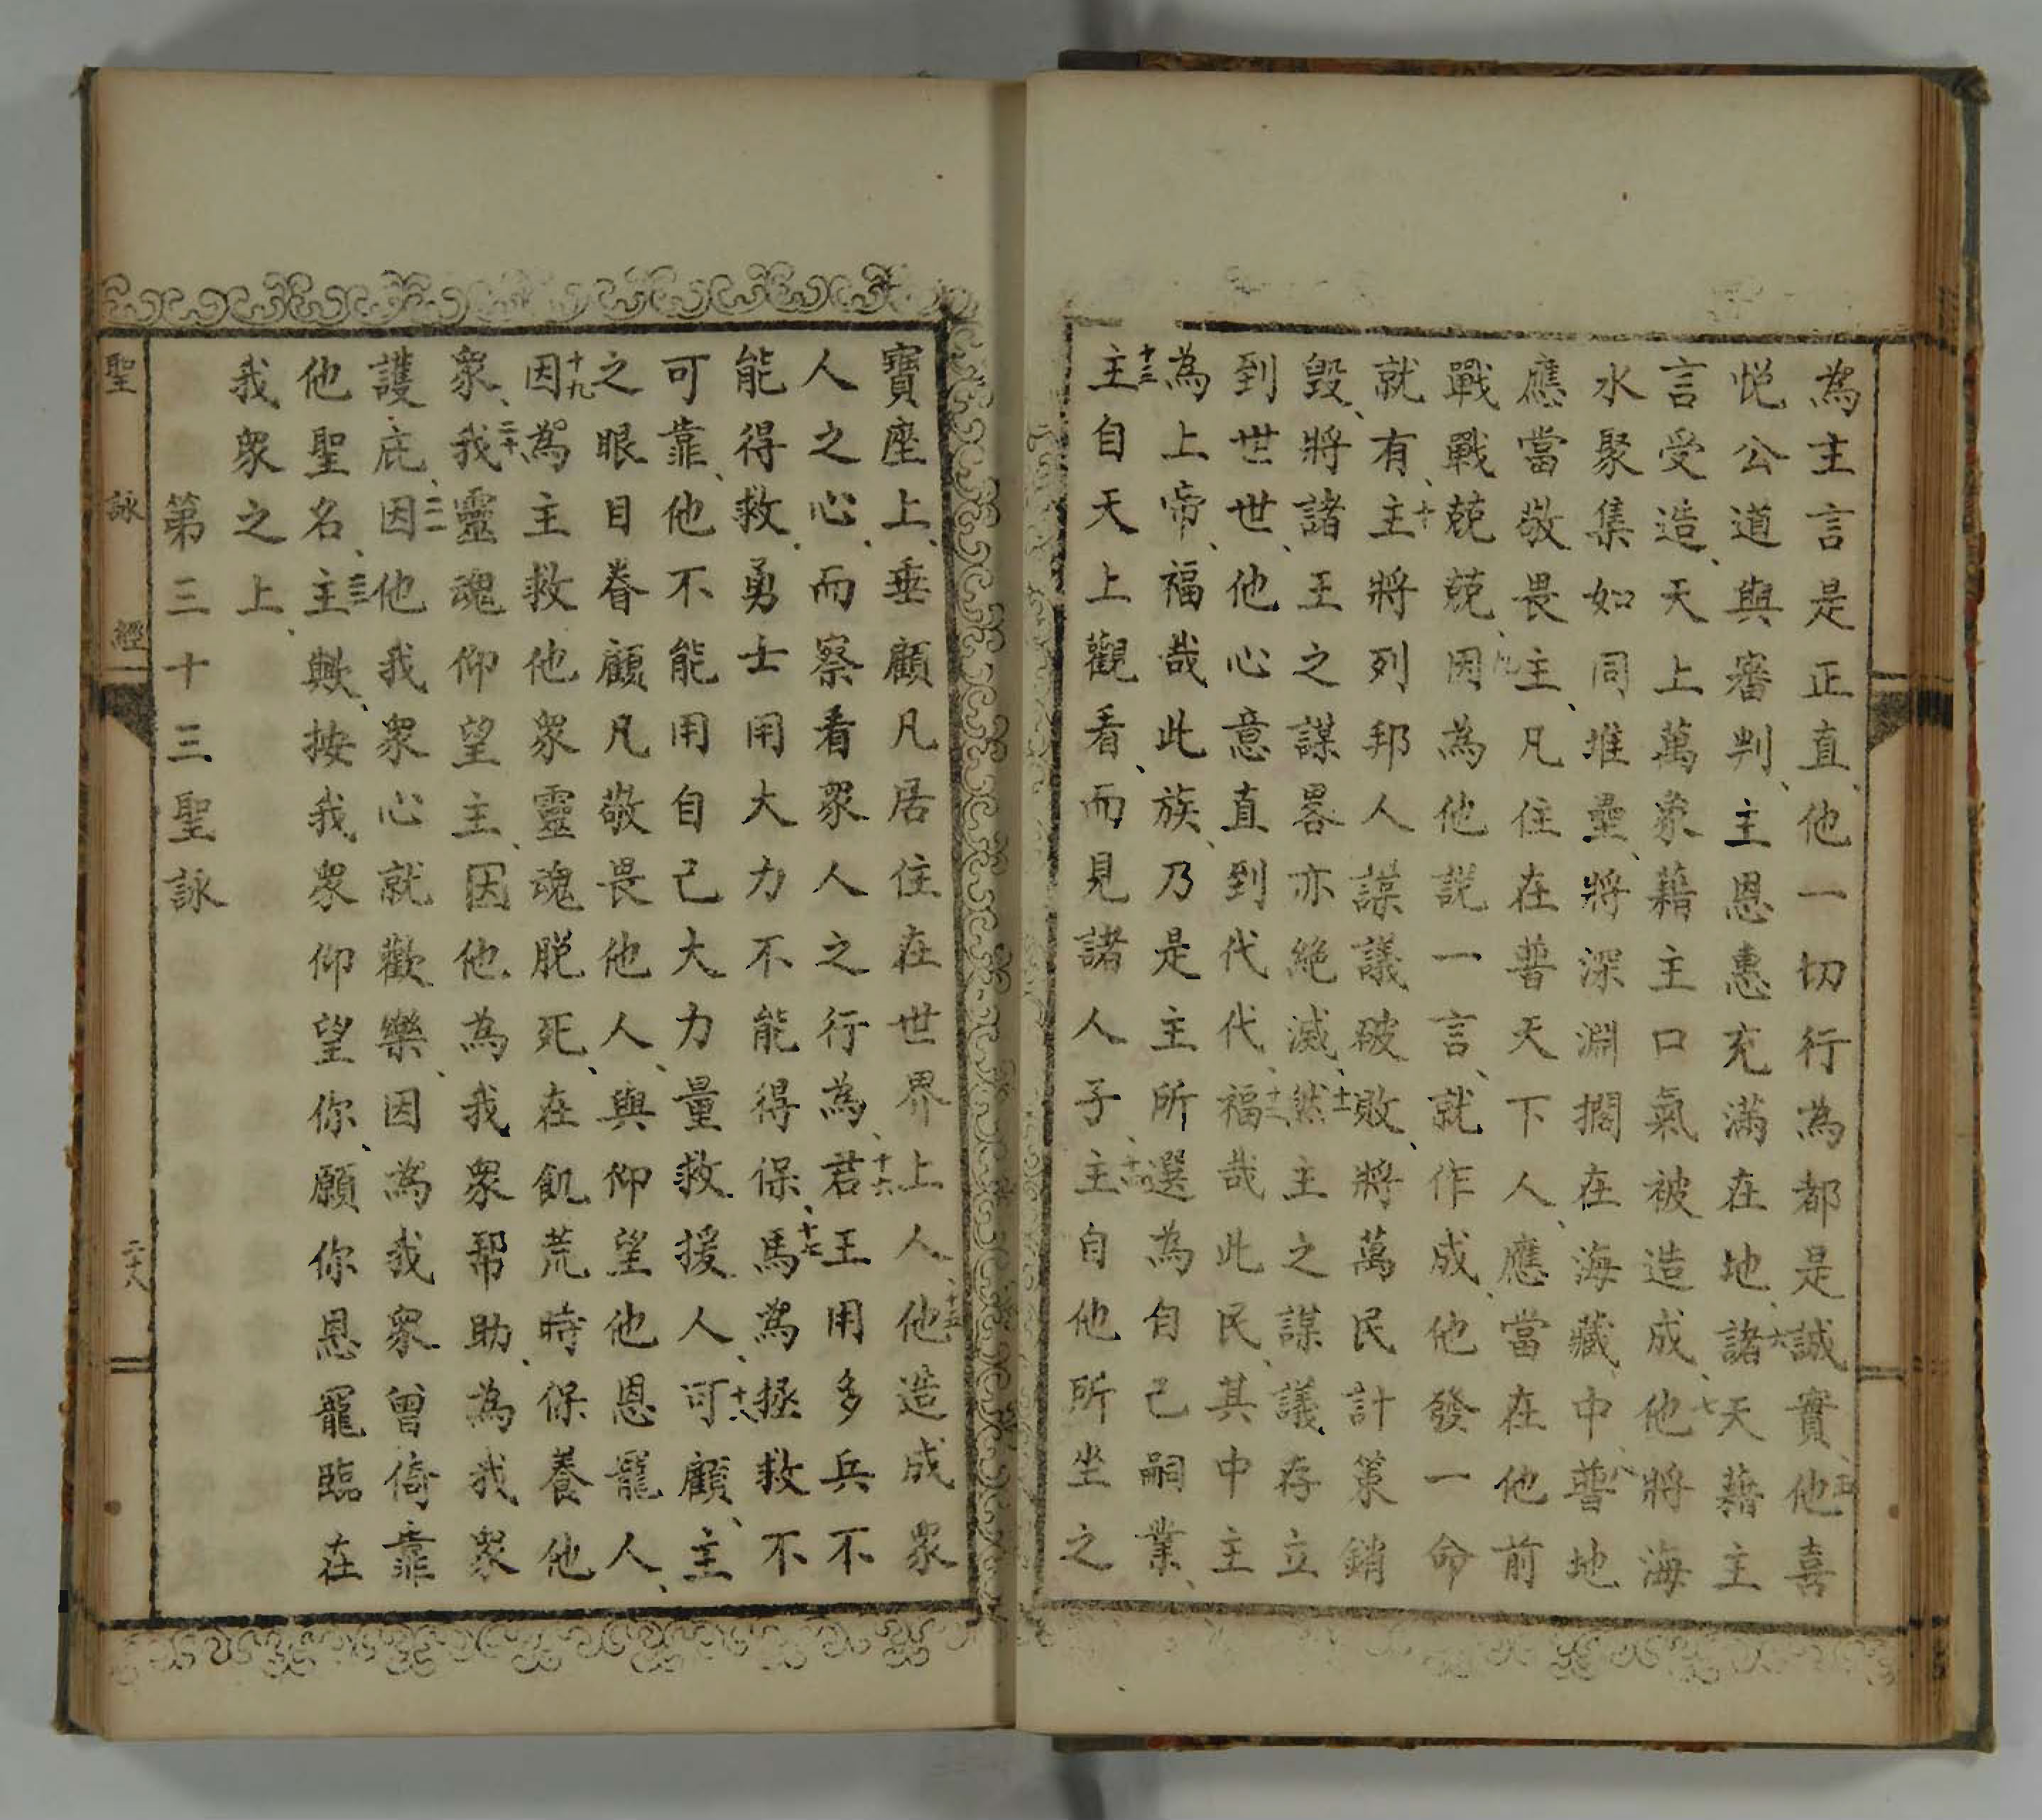 為主言是正直、他一切行為都是誠實、五他喜
悅公道與審判、主恩惠充滿在地、六諸天藉主
言受造、天上萬象藉主口氣被造成、七他將海
水聚集如同堆壘、將深淵擱在海藏中、八普地
應當敬畏主、凡住在普天下人、應當在他前
戰戰兢兢、九因為他説一言、就作成、他發一命
就有、十主將列邦人謀議破敗、將萬民計策銷
毀、將諸王之謀畧亦絶滅、十一然主之謀議、存立
到世世、他心意直到代代、十二福哉此民、其中主
為上帝、福哉此族、乃是主所選為自己嗣業、
十三主自天上觀看、而見諸人子、十四主自他所坐之
寶座上、垂顧凡居住在世界上人、十五他造成衆
人之心、而察看衆人之行為、十六君王用多兵不
能得救、勇士用大力不能得保、十七馬為拯救不
可靠、他不能用自己大力量救援人、十八可顧、主
之眼目眷顧凡敬畏他人、與仰望他恩寵人、
十九因為主救他衆靈魂脱死、在飢荒時保養他
衆、二十我靈魂仰望主、因他為我衆幫助、為我衆
護庇、二一因他我衆心就歡樂、因為我衆曾倚靠
他聖名、二二主歟、按我衆仰望你、願你恩寵臨在
我衆之上、
第三十三聖詠
聖詠經
二十八